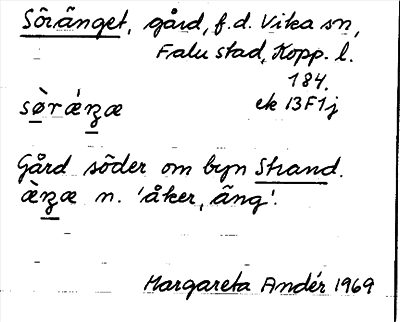 Söränget, gård, f.d. Vika sn,
Falu stad, Kopp. l.
184.
sø̀rǽȥæ ek 13F1j
Gård söder om byn Strand.
æ̀ȥæ n. 'åker, äng'.
Margareta Andér 1969